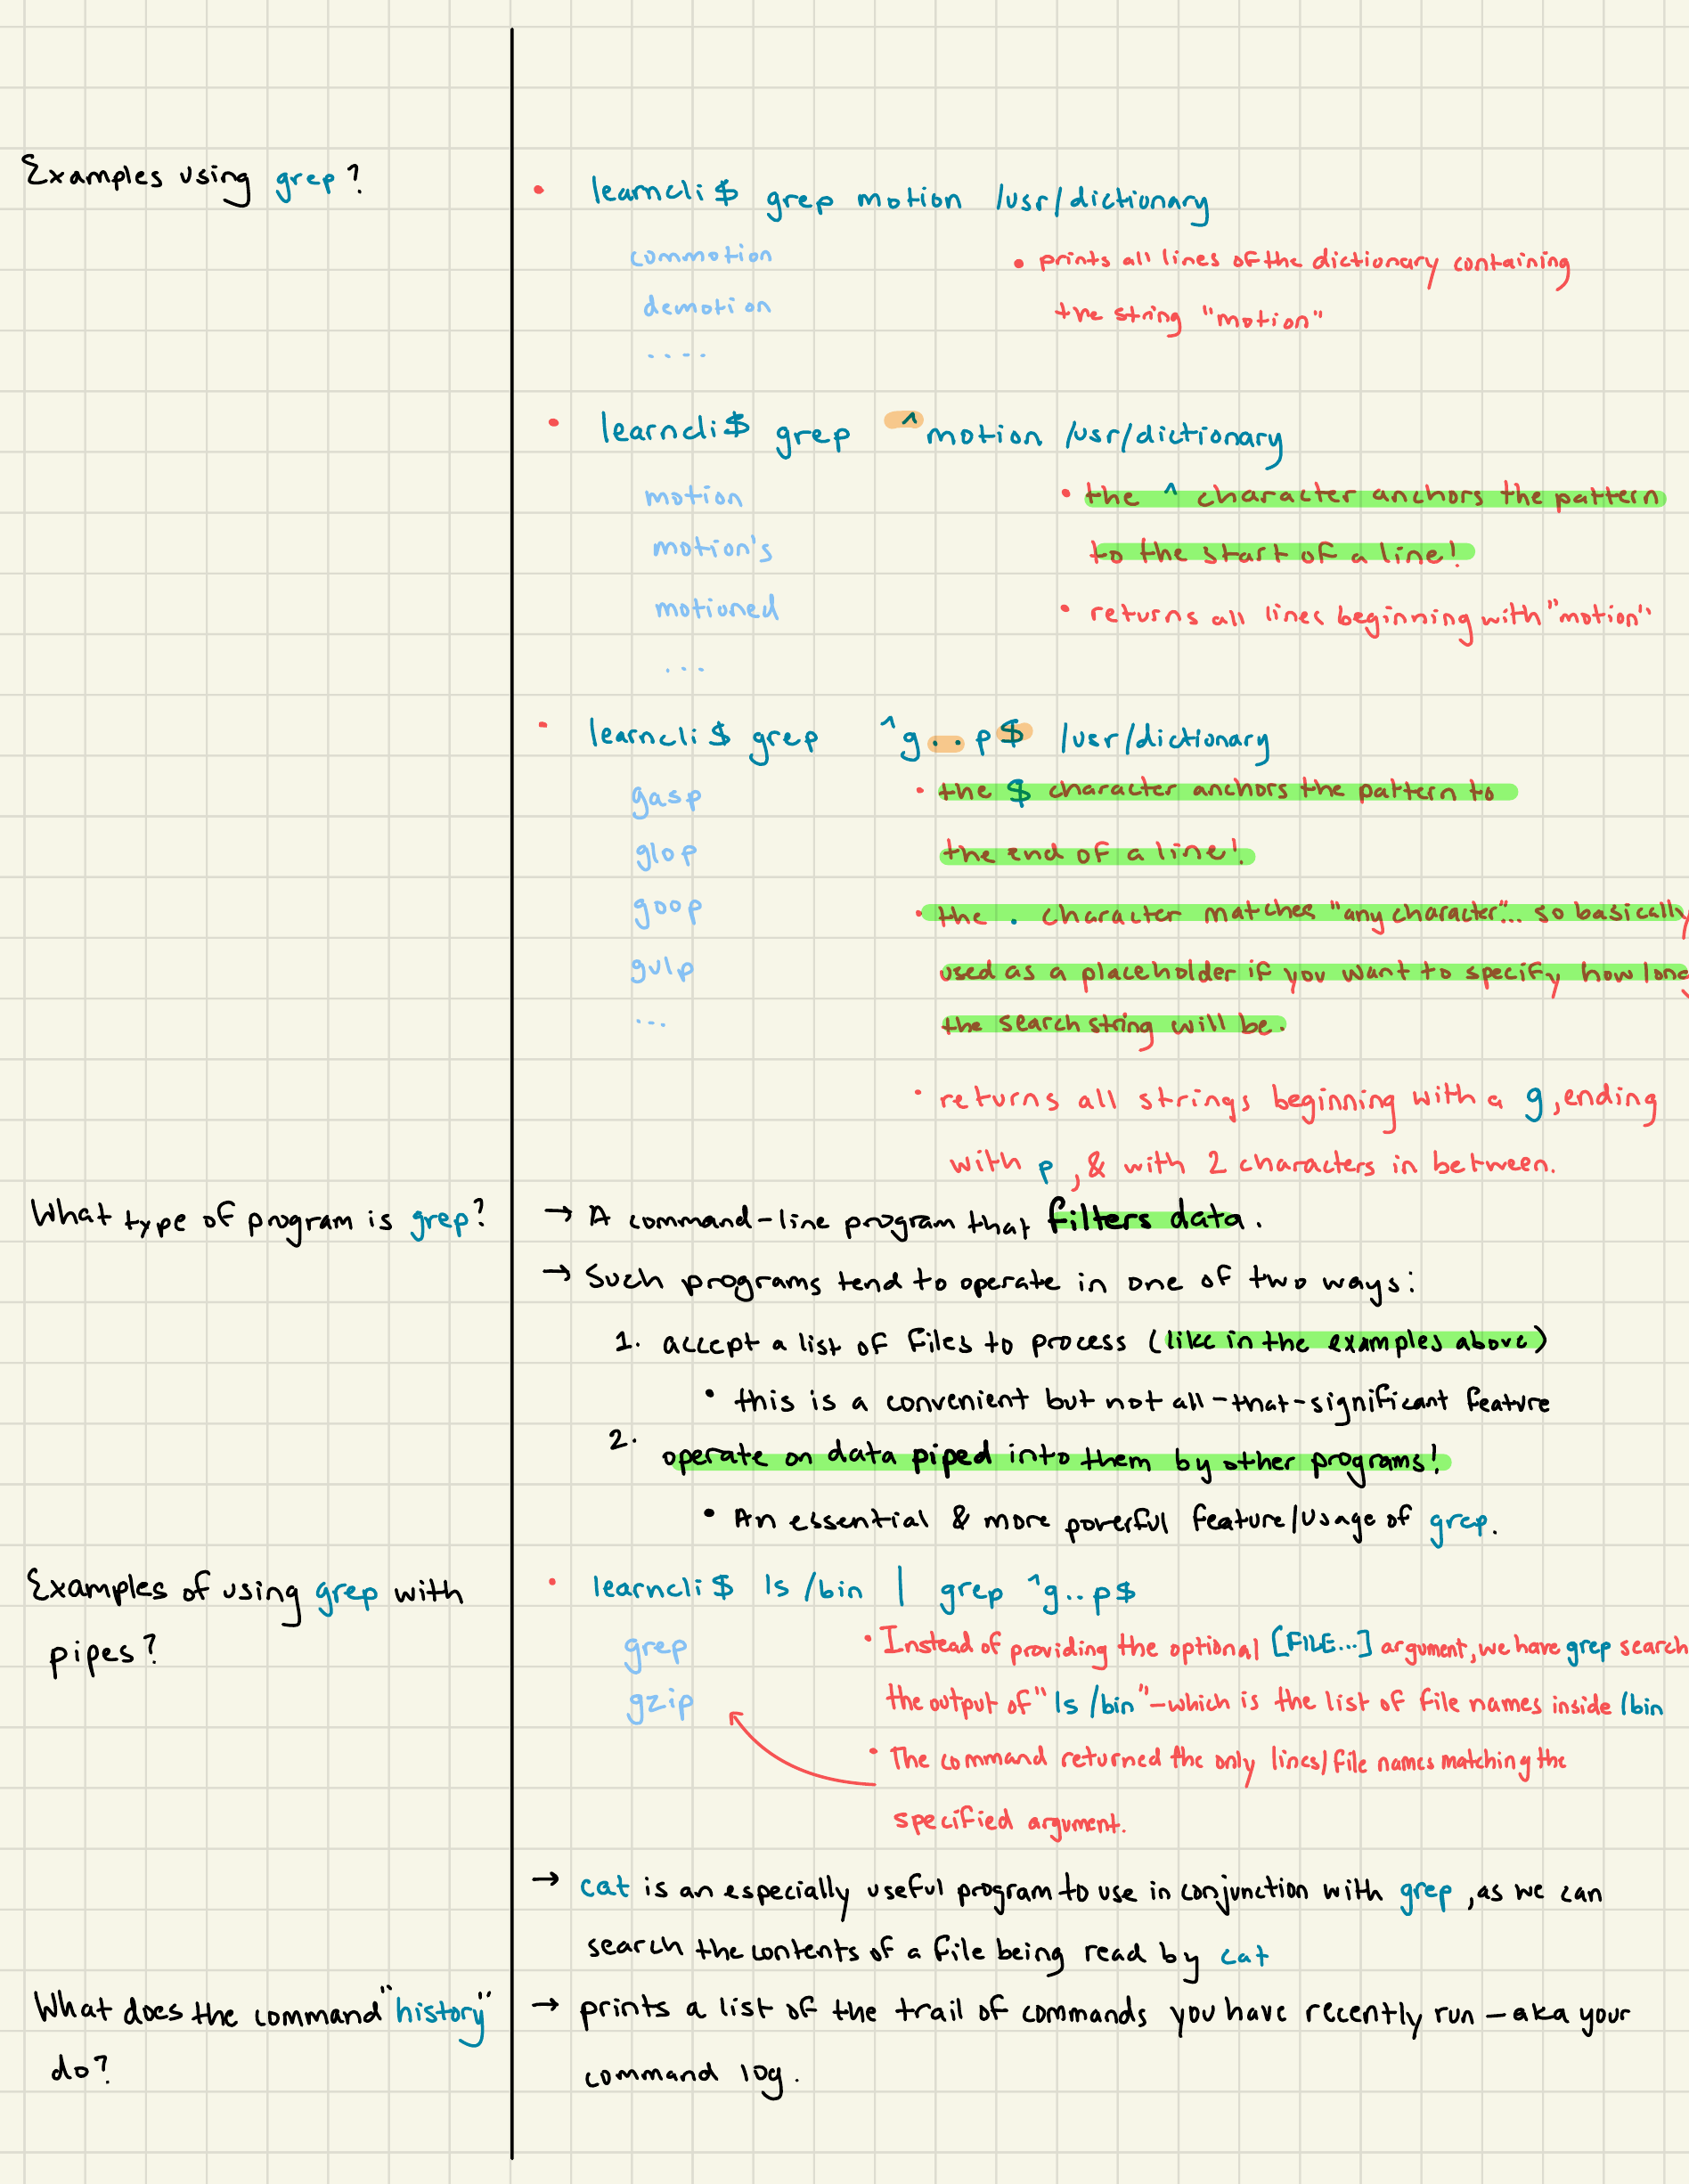 Examples using grep?
• learncli$ grep motion /usr/dictionary
commotion
• prints all lines of the dictionary containing
demotion
the string "motion"
....
• learncli$ grep ^motion /usr/dictionary
motion
• the ^ character anchors the pattern
motion's
to the start of a line!
motioned
• returns all lines beginning with "motion"
...
• learncli$ grep ^g..p$ /usr/dictionary
gasp
• the $ character anchors the pattern to
glop
the end of a line!
goop
• the . character matches "any character"... so basically
gulp
used as a placeholder if you want to specify how long
...
the search string will be.
• returns all strings beginning with a g, ending
with p, & with 2 characters in between.
What type of program is grep?
→ A command-line program that filters data.
→ Such programs tend to operate in one of two ways:
1. accept a list of files to process (like in the examples above)
• this is a convenient but not all-that-significant feature
2. operate on data piped into them by other programs!
• An essential & more powerful feature/usage of grep.
Examples of using grep with
pipes?
• learncli$ ls /bin | grep ^g..p$
grep
• Instead of providing the optional [FILE...] argument, we have grep search
gzip
the output of "ls /bin" - which is the list of file names inside /bin
• The command returned the only lines/file names matching the
specified argument.
→ cat is an especially useful program to use in conjunction with grep, as we can
search the contents of a file being read by cat
What does the command "history"
do?
→ prints a list of the trail of commands you have recently run - aka your
command log.